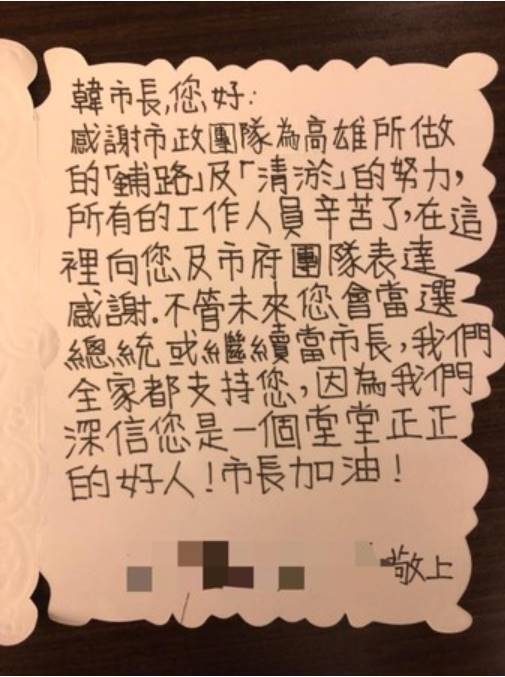 韓市長,您好:
感謝市政團隊為高雄所做
的「鋪路」及「清淤」的努力,
所有的工作人員辛苦了,在這
裡向您及市府團隊表達
感謝.不管未來您會當選
總統或繼續當市長,我們
全家都支持您,因為我們
深信您是一個堂堂正正
的好人!市長加油!
敬上